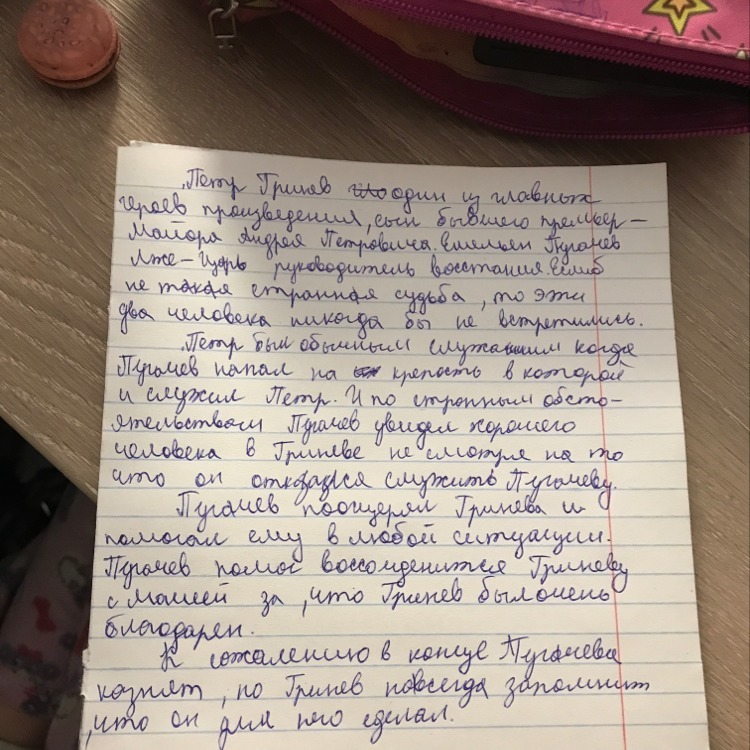 Петр Гринев один из главных
героев произведения, сын бывшего премьер-
майора Андрея Петровича. Емельян Пугачев
Лже-Царь руководитель восстания. Еслиб
не такая странная судьба, то эти
два человека никогда бы не встретились.
Петр был обычным служащим когда
Пугачев напал на крепость в которой
и служил Петр. И по странным обсто-
ятельствам Пугачев увидел хорошего
человека в Гриневе не смотря на то
что он отказался служить Пугачеву.
Пугачев поощерял Гринева и
помогал ему в любой ситуации.
Пугачев помог воссоиденится Гриневу
с Машей за, что Гринев был очень
благодарен.
К сожалению в конце Пугачева
казнят, но Гринев навсегда запомнит
, что он для него сделал.